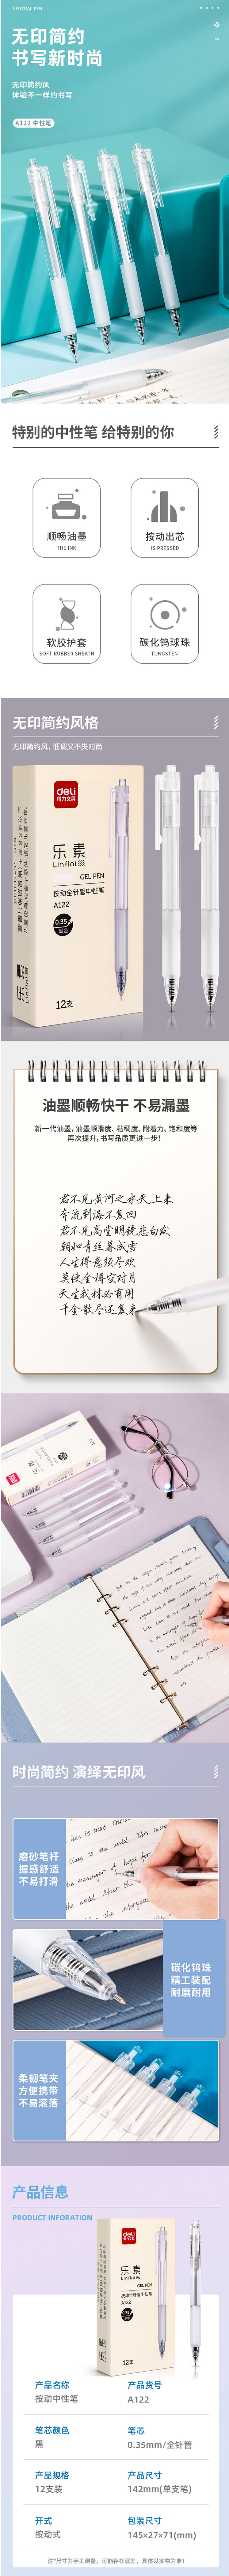 NEUTRAL PEN
无印简约
书写新时尚
无印简约风
体验不一样的书写
A122 中性笔
特别的中性笔 给特别的你
顺畅油墨
THE INK
按动出芯
IS PRESSED
软胶护套
SOFT RUBBER SHEATH
碳化钨球珠
TUNGSTEN
无印简约风格
无印简约风，低调又不失时尚
deli
得力文具
乐素
Linfini
GEL PEN
按动全针管中性笔
A122
0.35
黑色
12支
油墨顺畅快干 不易漏墨
新一代油墨，油墨顺滑度、粘稠度、附着力、饱和度等
再次提升，书写品质更进一步！
君不见黄河之水天上来
奔流到海不复回
君不见高堂明镜悲白发
朝如青丝暮成雪
人生得意须尽欢
莫使金樽空对月
天生我材必有用
千金散尽还复来
时尚简约 演绎无印风
磨砂笔杆
握感舒适
不易打滑
碳化钨珠
精工装配
耐磨耐用
柔韧笔夹
方便携带
不易滚落
产品信息
PRODUCT INFORATION
deli
得力文具
乐素
Linfini
GEL PEN
按动全针管中性笔
A122
12支
产品名称
按动中性笔
产品货号
A122
笔芯颜色
黑
笔芯
0.35mm/全针管
产品规格
12支装
产品尺寸
142mm(单支笔)
开式
按动式
包装尺寸
145×27×71(mm)
注*尺寸为手工测量，可能存在误差，具体以实物为准！